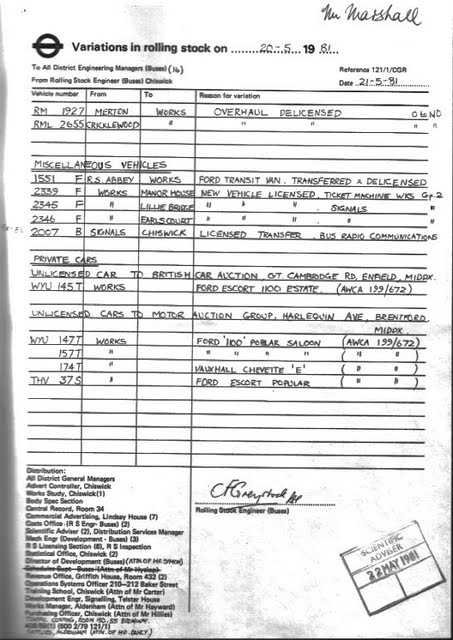 Mr Marshall
Variations in rolling stock on 20-5 1981
To All District Engineering Managers (Buses) (16)
Reference 121/1/CGR
From Rolling Stock Engineer (Buses) Chiswick
Date 21-5-81
Vehicle number From To Reason for variation
RM 1927 MERTON WORKS OVERHAUL DELICENSED O to ND
RML 2655 CRICKLEWOOD " " " "
MISCELLANEOUS VEHICLES
1551 F R.S. ABBEY WORKS FORD TRANSIT VAN. TRANSFERRED & DELICENSED
2339 F WORKS MANOR HOUSE NEW VEHICLE LICENSED, TICKET MACHINE WKS Gp.2
2345 F " LILLIE BRIDGE " " " . SIGNALS "
2346 F " EARLS COURT " " " . " "
2007 B SIGNALS CHISWICK LICENSED TRANSFER . BUS RADIO COMMUNICATIONS
PRIVATE CARS
UNLICENSED CAR TO BRITISH CAR AUCTION, GT. CAMBRIDGE RD, ENFIELD, MIDDX.
WYU 145T WORKS FORD ESCORT 1100 ESTATE. (AWCA 199/672)
UNLICENSED CARS TO MOTOR AUCTION GROUP, HARLEQUIN AVE, BRENTFORD.
MIDDX
WYU 147T WORKS FORD '1100' POPLAR SALOON (AWCA 199/672)
157T " " " " " ( " " )
174T " VAUXHALL CHEVETTE 'E' ( " " )
THV 37S " FORD ESCORT POPULAR ( " " )
Distribution:
All District General Managers
Advert Controller, Chiswick
Works Study, Chiswick(1)
Body Spec Section
Central Record, Room 34
Commercial Advertising, Lindsay House (7)
Costs Office (R S Engr- Buses) (2)
Scientific Adviser (2), Distribution Services Manager
Mech Engr (Development - Buses) (3)
R S Licensing Section (6), R S Inspection
Statistical Office, Chiswick (2)
Director of Development (Buses)
Schedules Supt - Buses (Attn of Mr Hyslop)
Revenue Office, Griffith House, Room 432 (2)
Operations Systems Officer 210-212 Baker Street
Training School, Chiswick (Attn of Mr Carter)
Development Engr, Signalling, Telstar House
Works Manager, Aldenham (Attn of Mr Hayward)
Purchasing Officer, Chiswick (Attn of Mr Hillies)
(500 2/79 121/1)
Rolling Stock Engineer (Buses)
SCIENTIFIC
ADVISER
22 MAY 1981